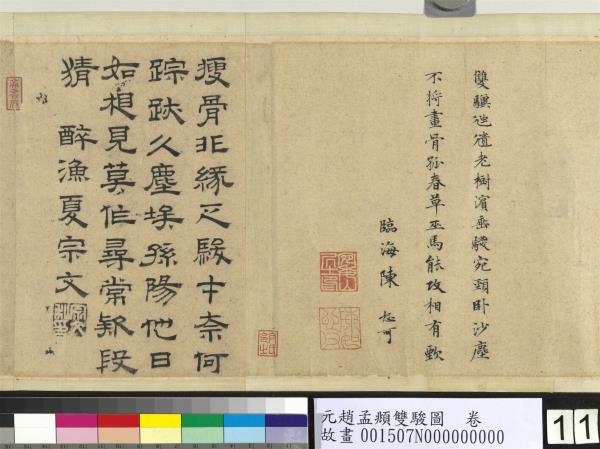 雙驥老樹濱垂騣宛頸臥沙塵
不將畫骨春草巫馬能攻相有
臨海陳
瘦骨非緣乏駿才奈何
踪跌久塵埃孫陽他日
如相見莫作尋常款段
猜 醉漁夏宗文
元趙孟頫雙駿圖 卷
故畫 001507N000000000
11